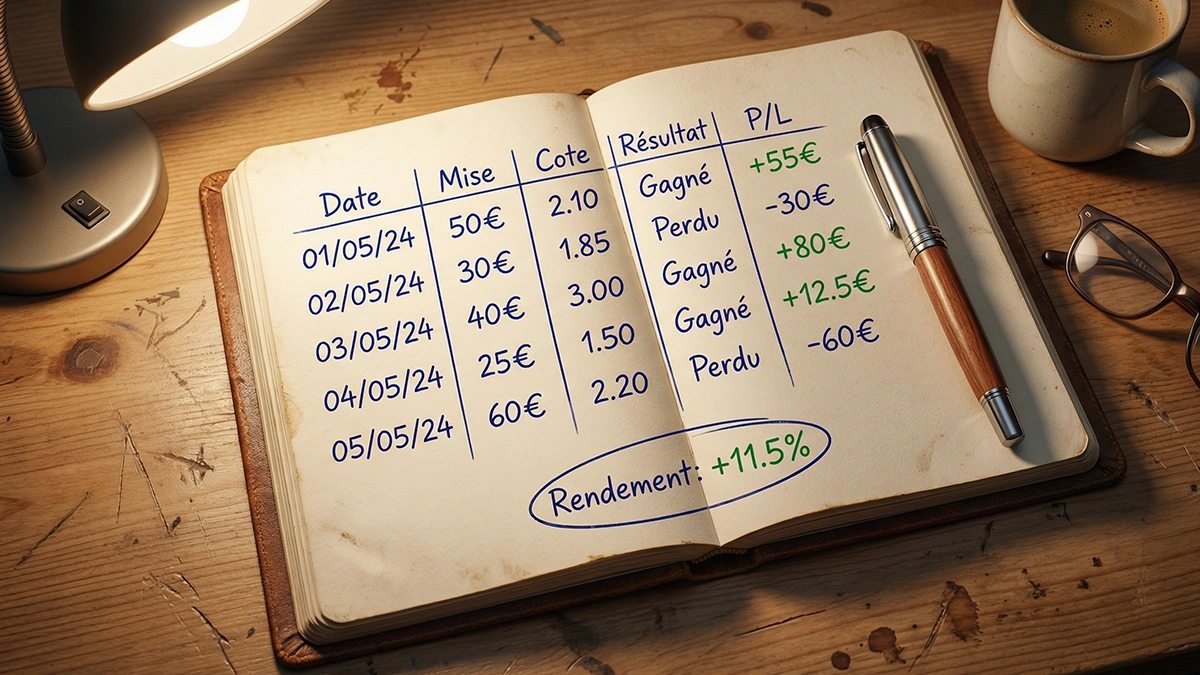 Date Mise Cote Résultat P/L
01/05/24 50€ 2.10 Gagné +55€
02/05/24 30€ 1.85 Perdu -30€
03/05/24 40€ 3.00 Gagné +80€
04/05/24 25€ 1.50 Gagné +12.5€
05/05/24 60€ 2.20 Perdu -60€
Rendement: +11.5%